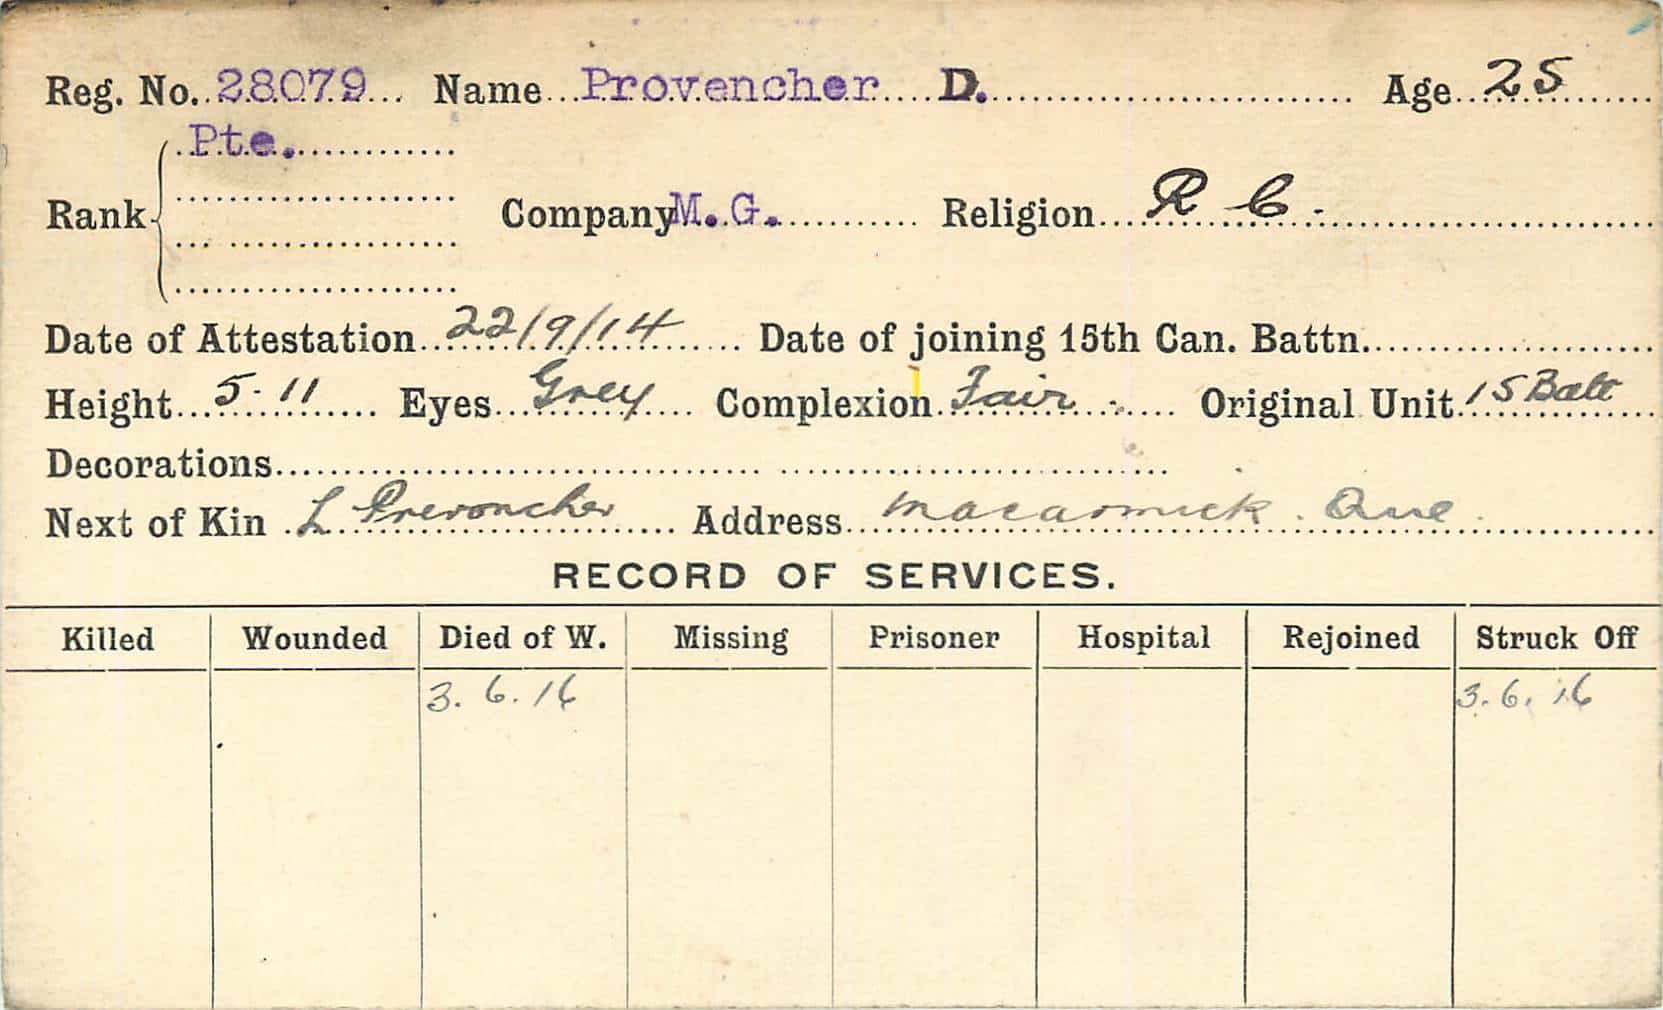 Reg. No. 28079 Name Provencher D. Age 25
Pte.
Rank Company M.G. Religion R C.
Date of Attestation 22/9/14 Date of joining 15th Can. Battn.
Height 5-11 Eyes Grey Complexion Fair Original Unit 15 Batt
Decorations
Next of Kin L Prevoncher Address Macarmick. Que
RECORD OF SERVICES.
Killed Wounded Died of W. Missing Prisoner Hospital Rejoined Struck Off
3. 6. 16 3. 6. 16